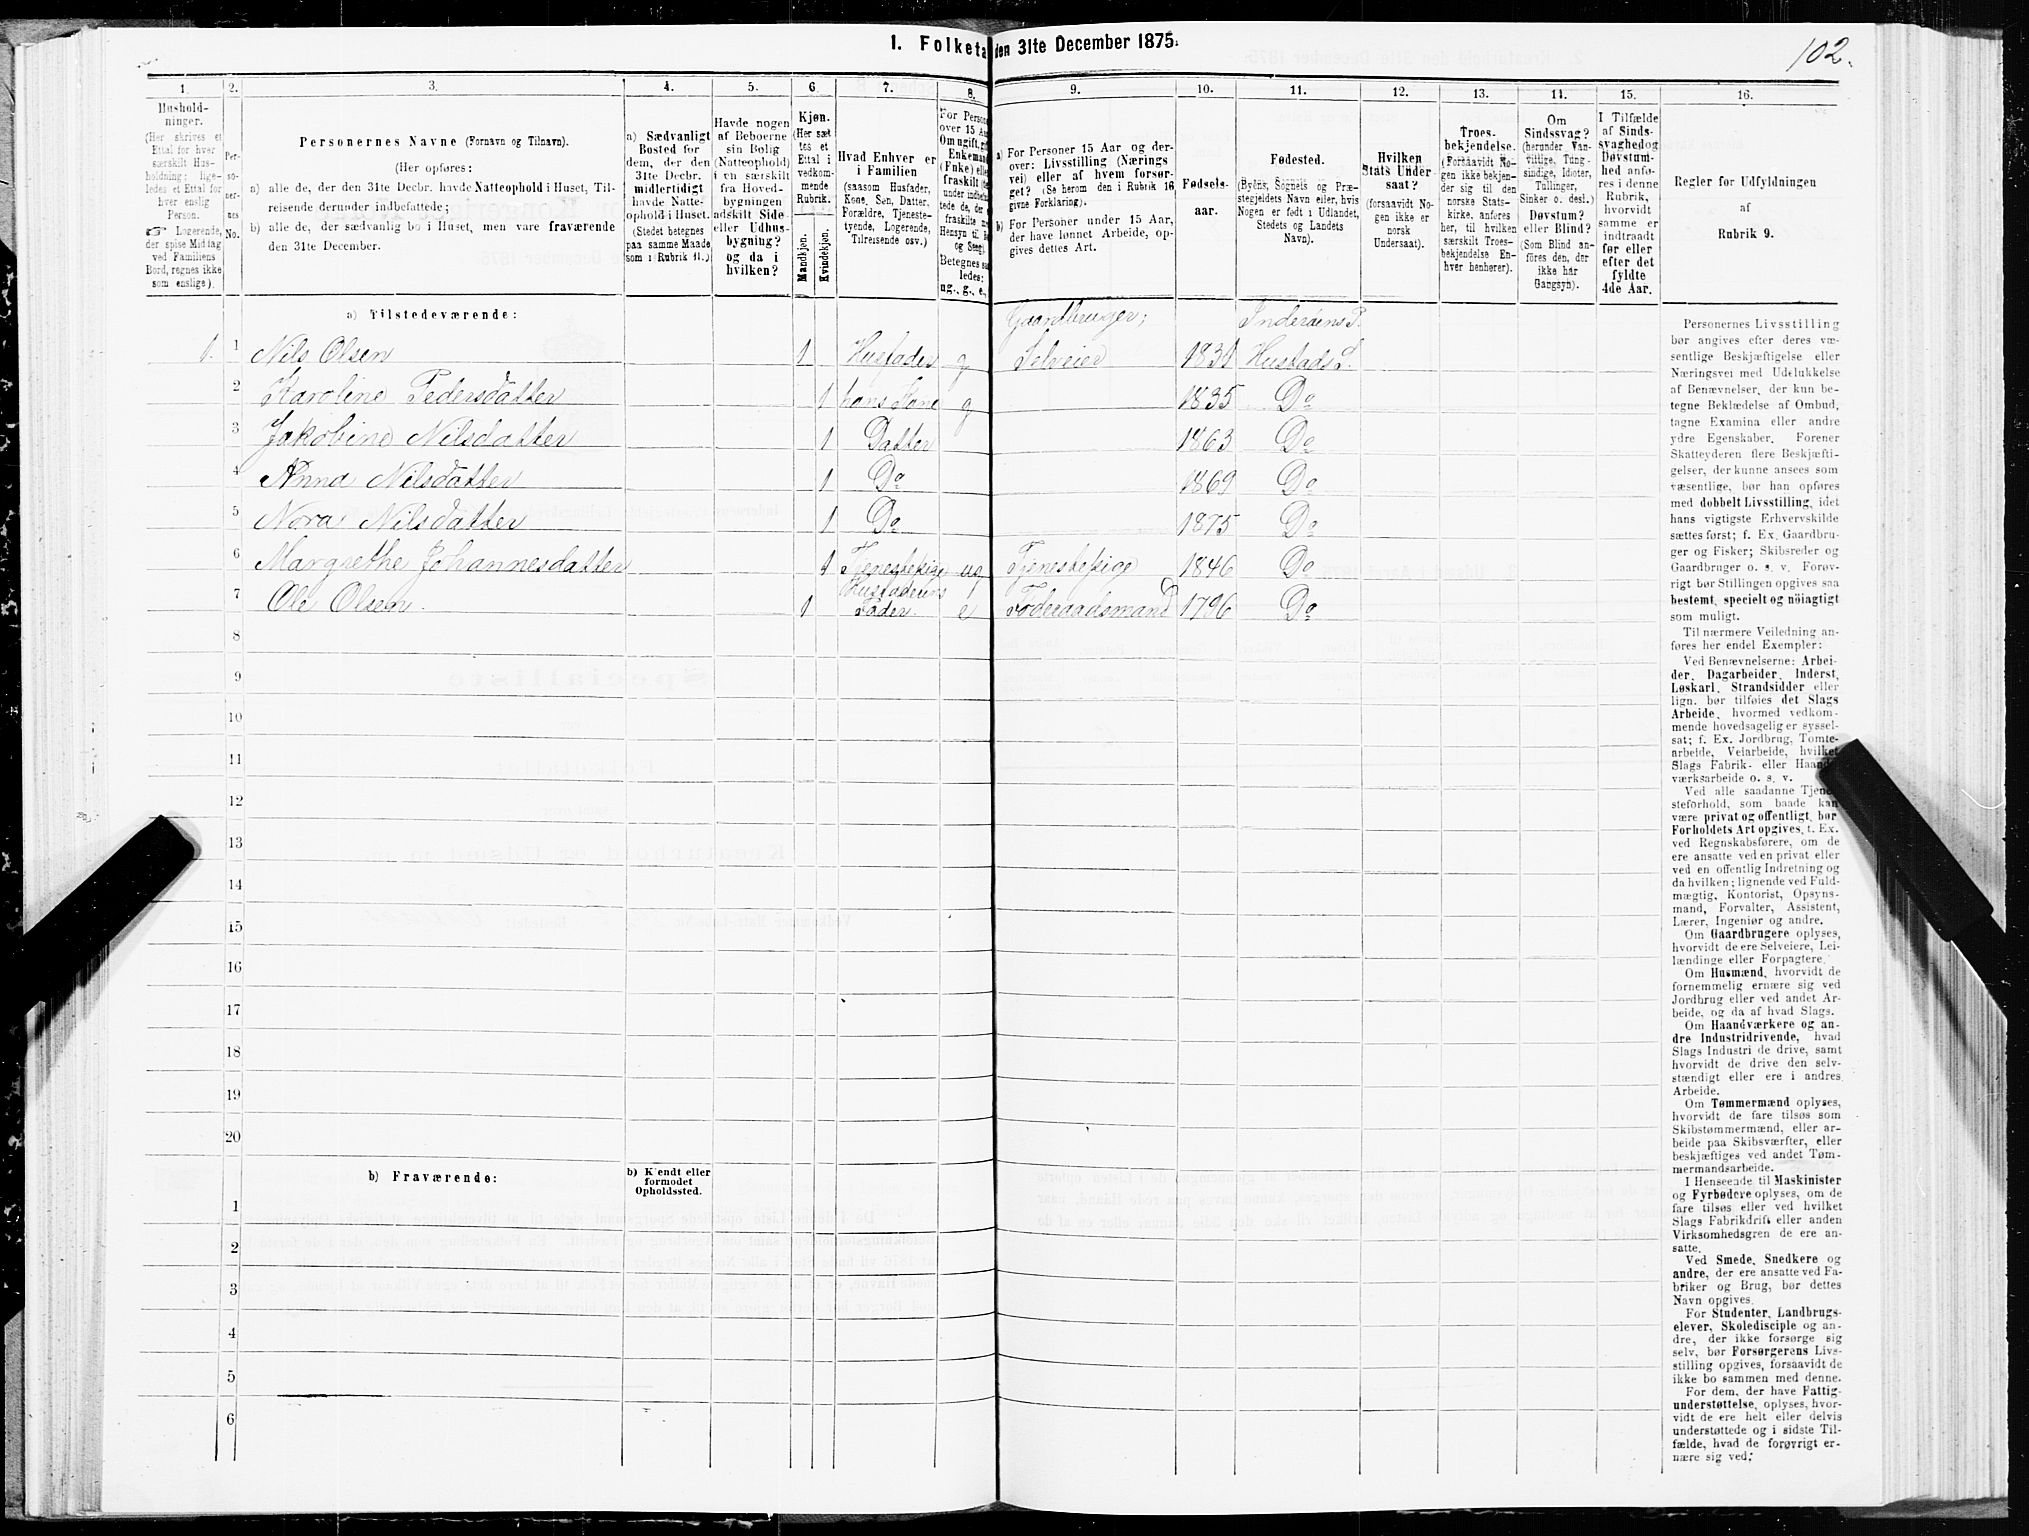 1. Folketa
den 31te December 1875.
102.
1.
Hushold-
ninger.
(Her skrives et
Ettal for hver
særskilt Hus-
holdning; lige-
ledes et Ettal for
hver enslig
Person.
☞ Logerende,
der spise Middag
ved Familiens
Bord, regnes ikke
som enslige).
2.
Per-
so-
ner-
nes
No.
3.
Personernes Navne (Fornavn og Tilnavn).
(Her opføres:
a) alle de, der den 31te Decbr. havde Natteophold i Huset, Til-
reisende derunder indbefattede;
b) alle de, der sædvanlig bo i Huset, men vare fraværende
den 31te December.
4.
a) Sædvanligt
Bosted for
dem, der den
31te Decbr.
midlertidigt
havde Natte-
ophold i Huset.
(Stedet betegnes
paa samme Maade
som i Rubrik 11.)
5.
Havde nogen
af Beboerne
sin Bolig
(Natteophold)
i en særskilt
fra Hoved-
bygningen
adskilt Side-
eller Udhus-
bygning?
og da i
hvilken?
6.
Kjøn.
(Her sæt-
tes et
Ettal i
vedkom-
mende
Rubrik.
Mandkjøn.
Kvindekjøn.
7.
Hvad Enhver er
i Familien
(saasom Husfader,
Kone, Søn, Datter,
Forældre, Tjeneste-
tyende, Logerende,
Tilreisende osv.)
8.
For Person
over 15 Aar
Om ugift, gift
Enkemand
(Enke) elle
fraskilt
Betegnes saa
ledes:
ug., g., e.,
9.
a) For Personer 15 Aar og der-
over: Livsstilling (Nærings
vei) eller af hvem forsør-
get? (Se herom den i Rubrik 16
givne Forklaring).
b) For Personer under 15 Aar,
der have lønnet Arbeide, op-
gives dettes Art.
10.
Fødsels-
aar.
11.
Fødested.
(Byens, Sognets og Præ-
stegjeldets Navn eller, hvis
Nogen er født i Udlandet,
Stedets og Landets
Navn).
12.
Hvilken
Stats Under-
saat?
(forsaavidt No-
gen ikke er
norsk
Undersaat).
13.
Troes-
bekjendelse.
(Forsaavidt No-
gen ikke bekjen-
der sig til den
norske Stats-
kirke, anføres
her, til hvilken
særskilt Troes-
bekjendelse En-
hver henhører).
14.
Om
Sindssvag?
(herunder Van-
vittige, Tung-
sindige, Idioter,
Tullinger,
Sinker o. desl.)
Døvstum?
eller Blind?
(Som Blind an-
føres den, der
ikke har
Gangsyn).
15.
I Tilfælde
af Sinds-
svaghed og
Døvstum-
hed anfø-
res i denne
Rubrik,
hvorvidt
samme er
indtraadt
før eller
efter det
fyldte
4de Aar.
16.
Regler for Udfyldningen
af
Rubrik 9.
a) Tilstedeværende:
Gaardbruger; Inderøens P.
1. 1 Nils Olsen 1 Husfader g Selveier 1831 Hustads S.
2 Karoline Pedersdatter 1 hans Kone g 1835 Do
3 Jakobine Nilsdatter 1 Datter 1863 Do
4 Anna Nilsdatter 1 Do 1869 Do
5 Nora Nilsdatter 1 Do 1875 Do
6 Margrethe Johannesdatter 1 Tjenestepige ug Tjenestepige 1846 Do
Husfaderens
7 Ole Olsen 1 Fader e Føderaadsmand 1796 Do
8
9
10
11
12
13
14
15
16
17
18
19
20
b) Fraværende:
b) Kjendt eller
formodet
Opholdssted.
1
2
3
4
5
6
Personernes Livsstilling
bør angives efter deres væ-
sentlige Beskjæftigelse eller
Næringsvei med Udelukkelse
af Benævnelser, der kun be-
tegne Beklædelse af Ombud,
tagne Examina eller andre
ydre Egenskaber. Forener
Skatteyderen flere Beskjæfti-
gelser, der kunne ansees som
væsentlige, bør han opføres
med dobbelt Livsstilling, idet
hans vigtigste Erhvervskilde
sættes først; f. Ex. Gaardbru-
ger og Fisker; Skibsreder og
Gaardbruger o. s. v. Forøv-
rigt bør Stillingen opgives saa
bestemt, specielt og nöiagtigt
som muligt.
Til nærmere Veiledning an-
føres her endel Exempler:
Ved Benævnelserne: Arbei-
der, Dagarbeider, Inderst,
Løskarl, Strandsidder eller
lign. bør tilføies det Slags
Arbeide, hvormed vedkom-
mende hovedsagelig er syssel-
sat; f. Ex. Jordbrug, Tomte-
arbeide, Veiarbeide, hvilket
Slags Fabrik- eller Haand-
værksarbeide o. s. v.
Ved alle saadanne Tjene-
steforhold, som baade kan
være privat og offentligt, bør
Forholdets Art opgives, t. Ex.
ved Regnskabsførere, om de
ere ansatte ved en privat eller
ved en offentlig Indretning og
da hvilken; lignende ved Fuld-
mægtig, Kontorist, Opsyns-
mand, Forvalter, Assistent,
Lærer, Ingeniør og andre.
Om Gaardbrugere oplyses,
hvorvidt de ere Selveiere, Lei-
lændinge eller Forpagtere.
Om Husmænd, hvorvidt de
fornemmelig ernære sig ved
Jordbrug eller ved andet Ar-
beide, og da af hvad Slags.
Om Haandværkere og an-
dre Industridrivende, hvad
Slags Industri de drive, samt
hvorvidt de drive den selv-
stændigt eller ere i andres
Arbeide.
Om Tømmermænd oplyses,
hvorvidt de fare tilsøs som
Skibstømmermænd, eller ar-
beide paa Skibsværfter, eller
beskjæftiges ved andet Tøm-
mermandsarbeide.
I Henseende til Maskinister
og Fyrbødere oplyses, om de
fare tilsøs eller ved hvilket
Slags Fabrikdrift eller anden
Virksomhedsgren de ere an-
satte.
Ved Smede, Snedkere og
andre, der ere ansatte ved Fa-
briker og Brug, bør dettes
Navn opgives.
For Studenter, Landbrugs-
elever, Skoledisciple og an-
dre, der ikke forsørge sig
selv, bør Forsørgerens Livs-
stilling opgives, forsaavidt de
ikke bo sammen med denne.
For dem, der have Fattig-
understøttelse, oplyses, hvor-
vidt de ere helt eller delvis
understøttede og i sidste Til-
fælde, hvad de forøvrigt er-
nære sig ved.